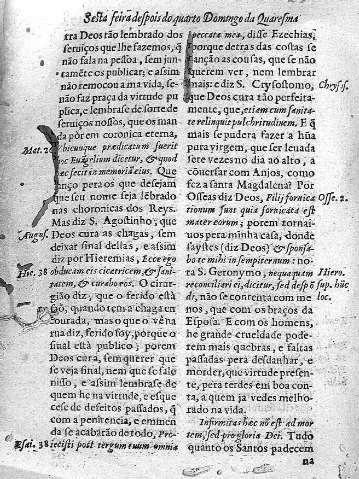 Sesta feira despois do quarto Domingo da Quaresma
tra Deos tão lembrado dos
serviços que lhe fazemos, q̃
não fala na pessoa, sem jun-
tamẽte os publicar; e assim
não remocou a ma vida, se-
não faz praça da virtude pu
plica, e lembrase de sorte de
serviços nossos, que os man-
da pòrem coronica eterna,
Mat. 26
Vbicunque prædicatum fuerit
hoc Euãgelium dicetur, & quod
hæc fecit in memoriã eius. Que
lanço pera os que desejam
que seu nome seja lẽbrado
nas choronicas dos Reys.
Mas diz S. Agostinho, que
Augus.
Deos cura as chagas, sem
deixar sinal dellas, e assim
diz por Hieremias, Ecce ego
Hie. 38
obducam eis cicatricem & sani-
tatem, & curabo eos. O cirur-
gião diz, que o ferido está
são, quando tem a chaga en
courada, mas o que o vè na
rua diz, ferido foy, porque o
sinal està publico; porem
Deos cura, sem querer que
se veja final, nem que se fale
nisso, e assim lembrase de
quem he na virtude, e esque
cese de defeitos passados, q̃
com a penitencia, e eminen
da se acabarão de todo, Pro-
Esai. 38
iecisti post tergum tuum omnia
peccata mea, disse Ezechias,
porque detras das costas se
lanção as cousas, que se não
querem ver, nem lembrar
mais: e diz S. Crysostomo,
Chrys.
que Deos cura tão perfeita-
mente, que, etiam cum sanita-
te relinquit pulchritudinem. E q̃
mais se pudera fazer a hũa
pura virgem, que ser levada
sete vezes no dia ao alto, a
cõversar com Anjos, como
fez a santa Magdalena? Por
Oseas diz Deos, Filij fornica-
Osse. 2.
tionum sunt quia fornicata est
mater eorum; porem tornai-
vos pera minha casa, donde
saystes (diz Deos) & sponsa-
bo te mihi in sempiternum: no-
ta S. Geronymo, nequaquam
Hiero.
reconciliari ei, dicitur, sed despõ
sup. hũc
di, não se contenta com me
loc.
nos, que com os braços da
Esposa. E com os homens,
he grande crueldade pode-
rem mais quebras, e faltas
passadas pera desdanhar, e
morder, que virtude presen-
te, pera terdes em boa con-
ta, a quem ja vedes melho-
rado na vida.
Infirmitas hæc nõ est ad mor
tem, sed pro gloria Dei. Tudo
quanto os Santos padecem
na